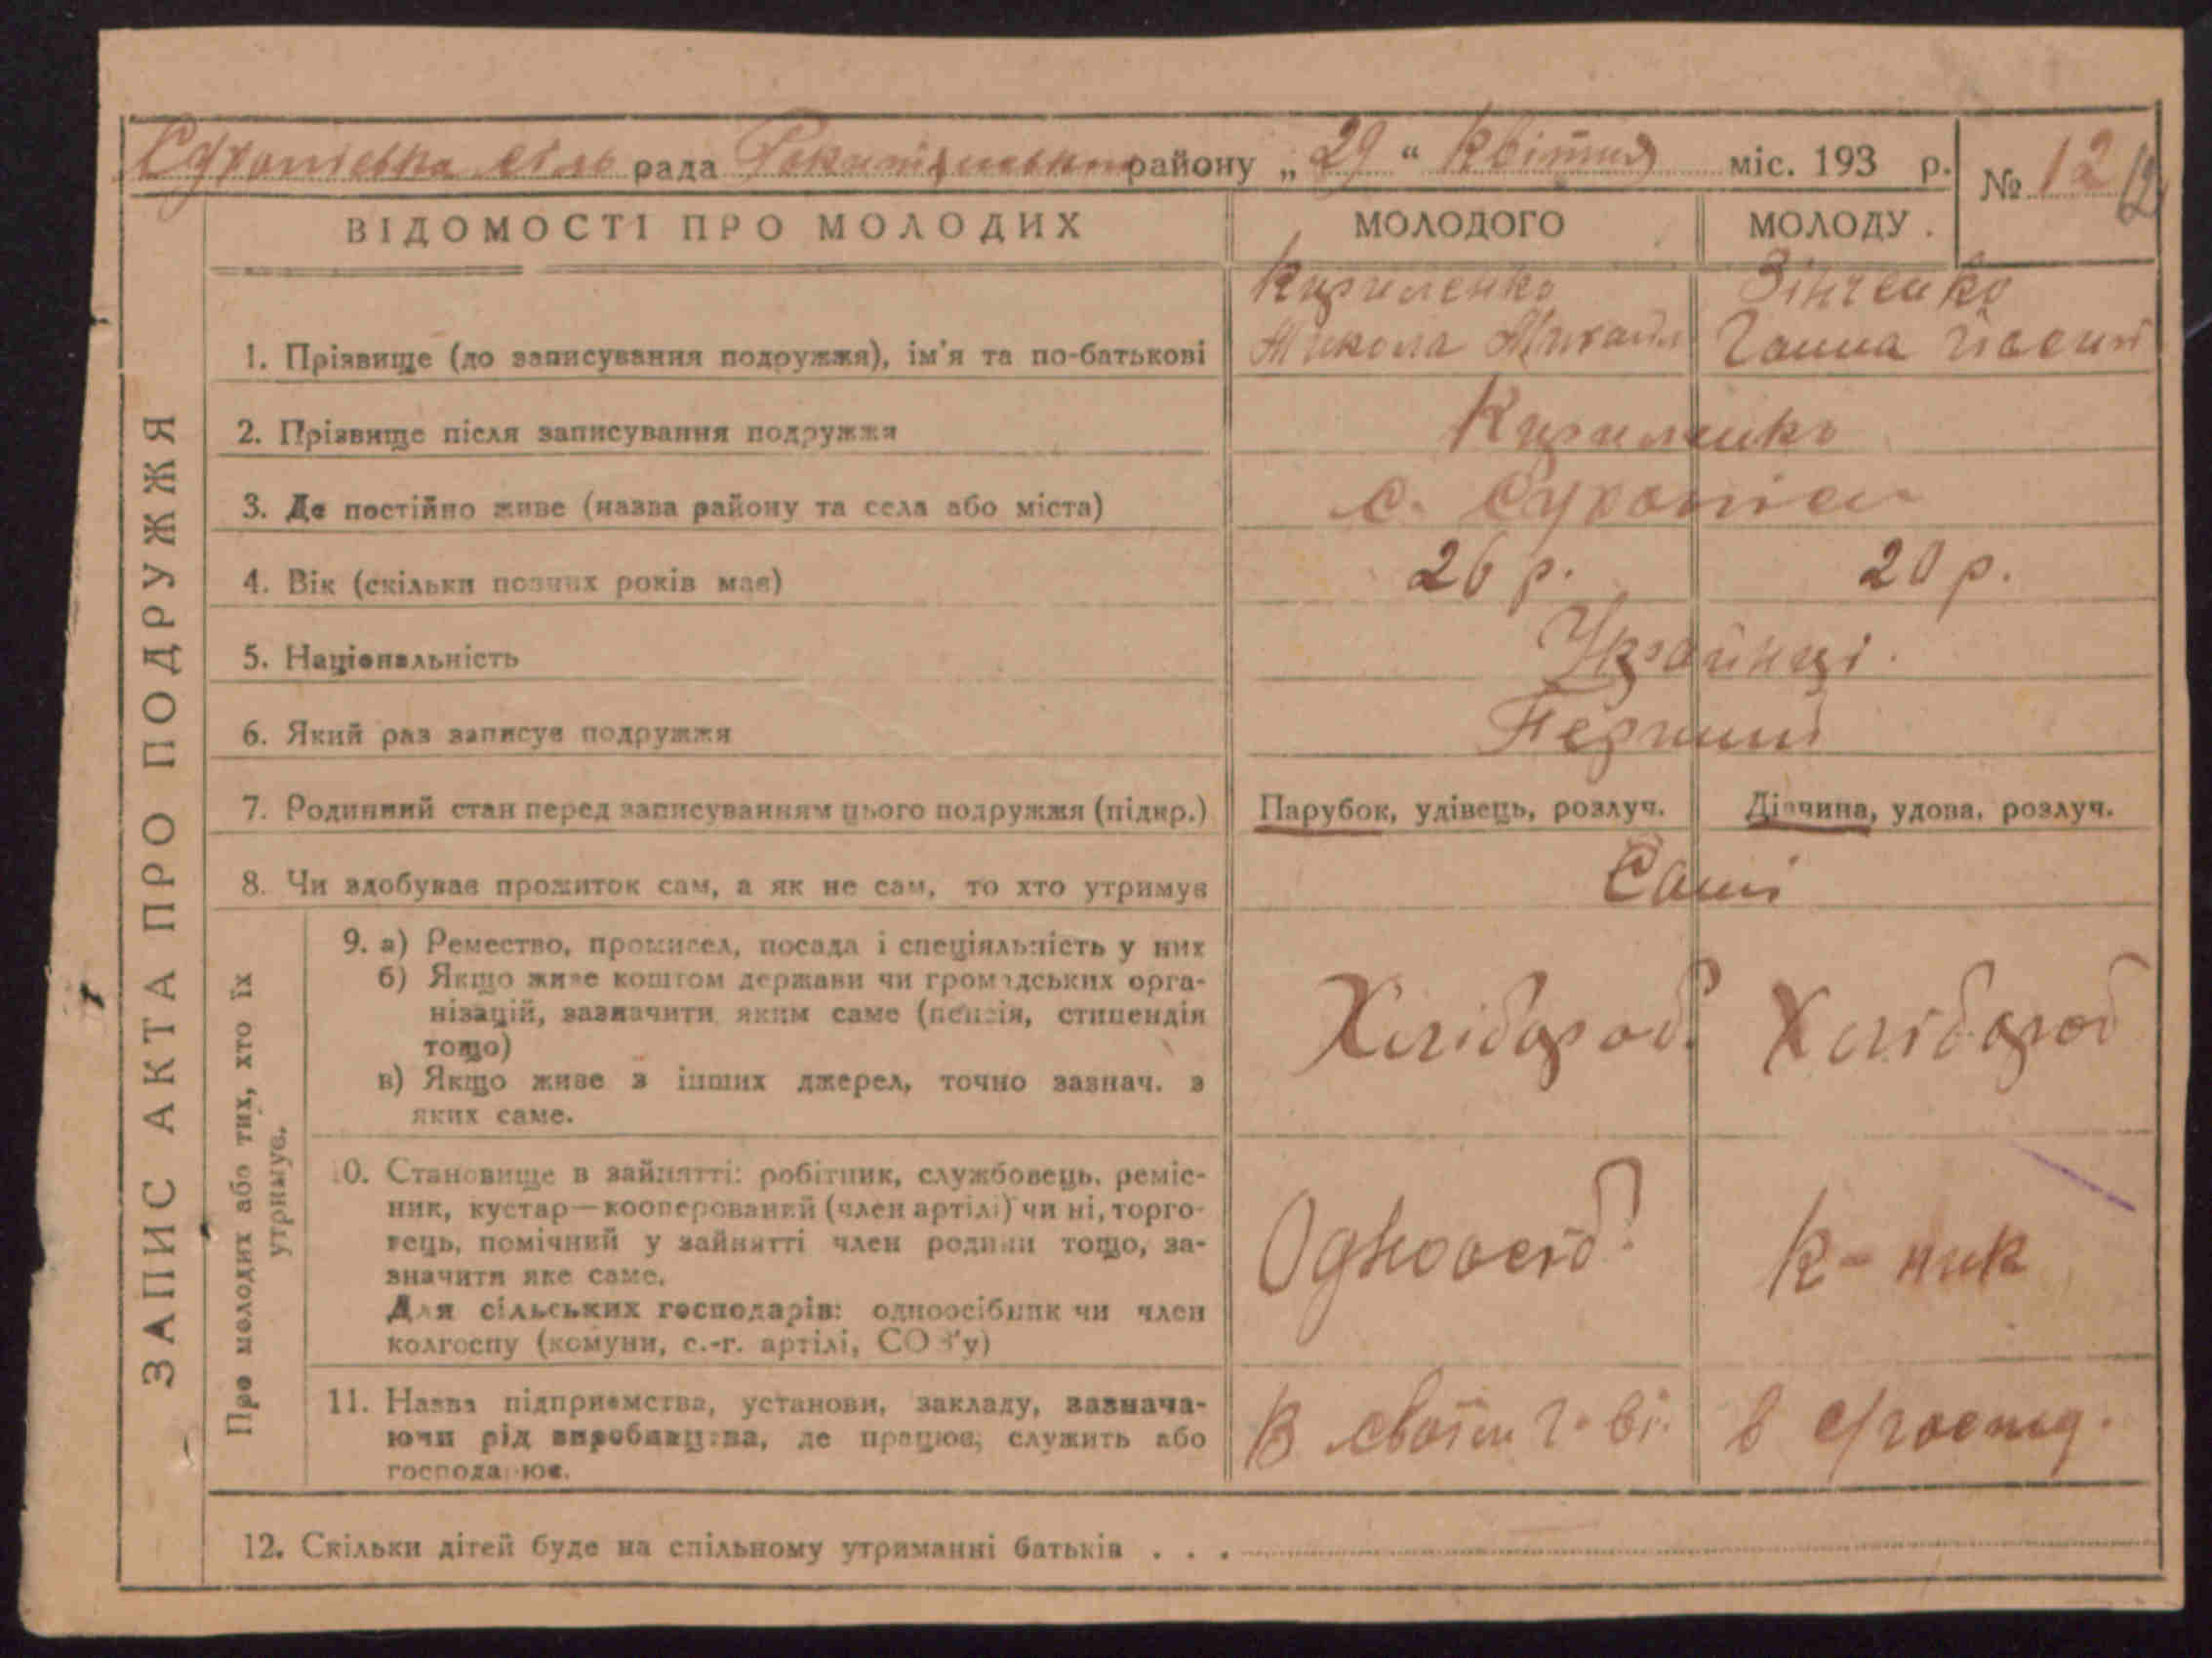 сіль рада району „ 29 “ Квітня міс. 193 р.
№ 12
ЗАПИС АКТА ПРО ПОДРУЖЖЯ
ВІДОМОСТІ ПРО МОЛОДИХ МОЛОДОГО МОЛОДУ
Кириленко Зінченко
1. Прізвище (до записування подружжя), ім'я та по-батькові Микола Михайл Ганна
2. Прізвище після записування подружжя Кириленко
3. Де постійно живе (назва району та села або міста) с.
4. Вік (скільки повних років має) 26 р. 20 р.
5. Національність Українці.
6. Який раз записує подружжя Перший
7. Родинний стан перед записуванням цього подружжя (підкр.) Парубок, удівець, розлуч. Дівчина, удова, розлуч.
8. Чи здобуває прожиток сам, а як не сам, то хто утримує Самі
Про молодих або тих, хто їх
утримує.
9. а) Ремество, промисел, посада і спеціяльність у них
б) Якщо живе коштом держави чи громадських орга-
нізацій, зазначити яким саме (пенсія, стипендія
тощо)
в) Якщо живе з інших джерел, точно зазнач. з
яких саме.
Хлібороб Хлібороб
10. Становище в зайнятті: робітник, службовець, реміс-
ник, кустар—кооперований (член артілі) чи ні, торго-
вець, помічний у зайнятті член родини тощо, за-
значити яке саме.
Для сільських господарів: одноосібник чи член
колгоспу (комуни, с.-г. артілі, СОЗ'у)
Одноосіб. к-ник
11. Назва підприємства, установи, закладу, зазнача-
ючи рід виробництва, де працює, служить або
господарює.
В своїм г-ві. в
12. Скільки дітей буде на спільному утриманні батьків . . .